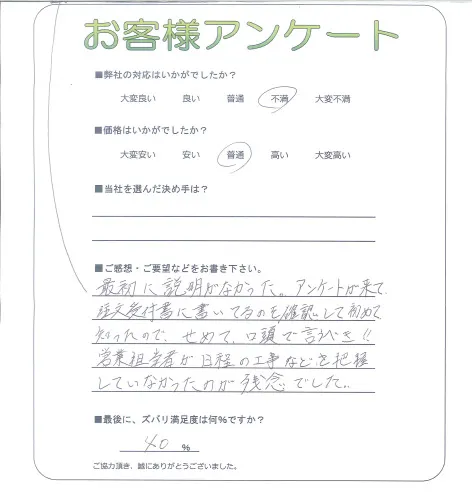 お客様アンケート
■弊社の対応はいかがでしたか?
大変良い 良い 普通 不満 大変不満
■価格はいかがでしたか?
大変安い 安い 普通 高い 大変高い
■当社を選んだ決め手は?
■ご感想・ご要望などをお書き下さい。
最初に説明がなかった。アンケートが来て、
注文受付書に書いてるのを確認して初めて
知ったので、せめて、口頭で言うべき!!
営業担当者が日程の工事などを把握
していなかったのが残念でした。
■最後に、ズバリ満足度は何%ですか?
40 %
ご協力頂き、誠にありがとうございました。